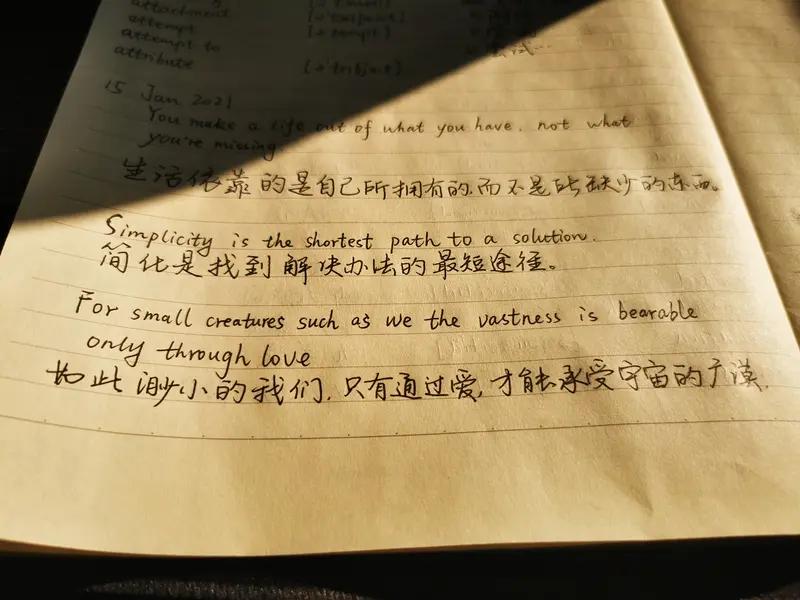 attachment
attempt
attempt to
尝试…
attribute
15 Jan 2021
You make a life out of what you have, not what
you're missing.
生活依靠的是自己所拥有的,而不是所缺少的东西。
Simplicity is the shortest path to a solution.
简化是找到解决办法的最短途径。
For small creatures such as we the vastness is bearable
only through love
如此渺小的我们,只有通过爱,才能承受宇宙的广漠.